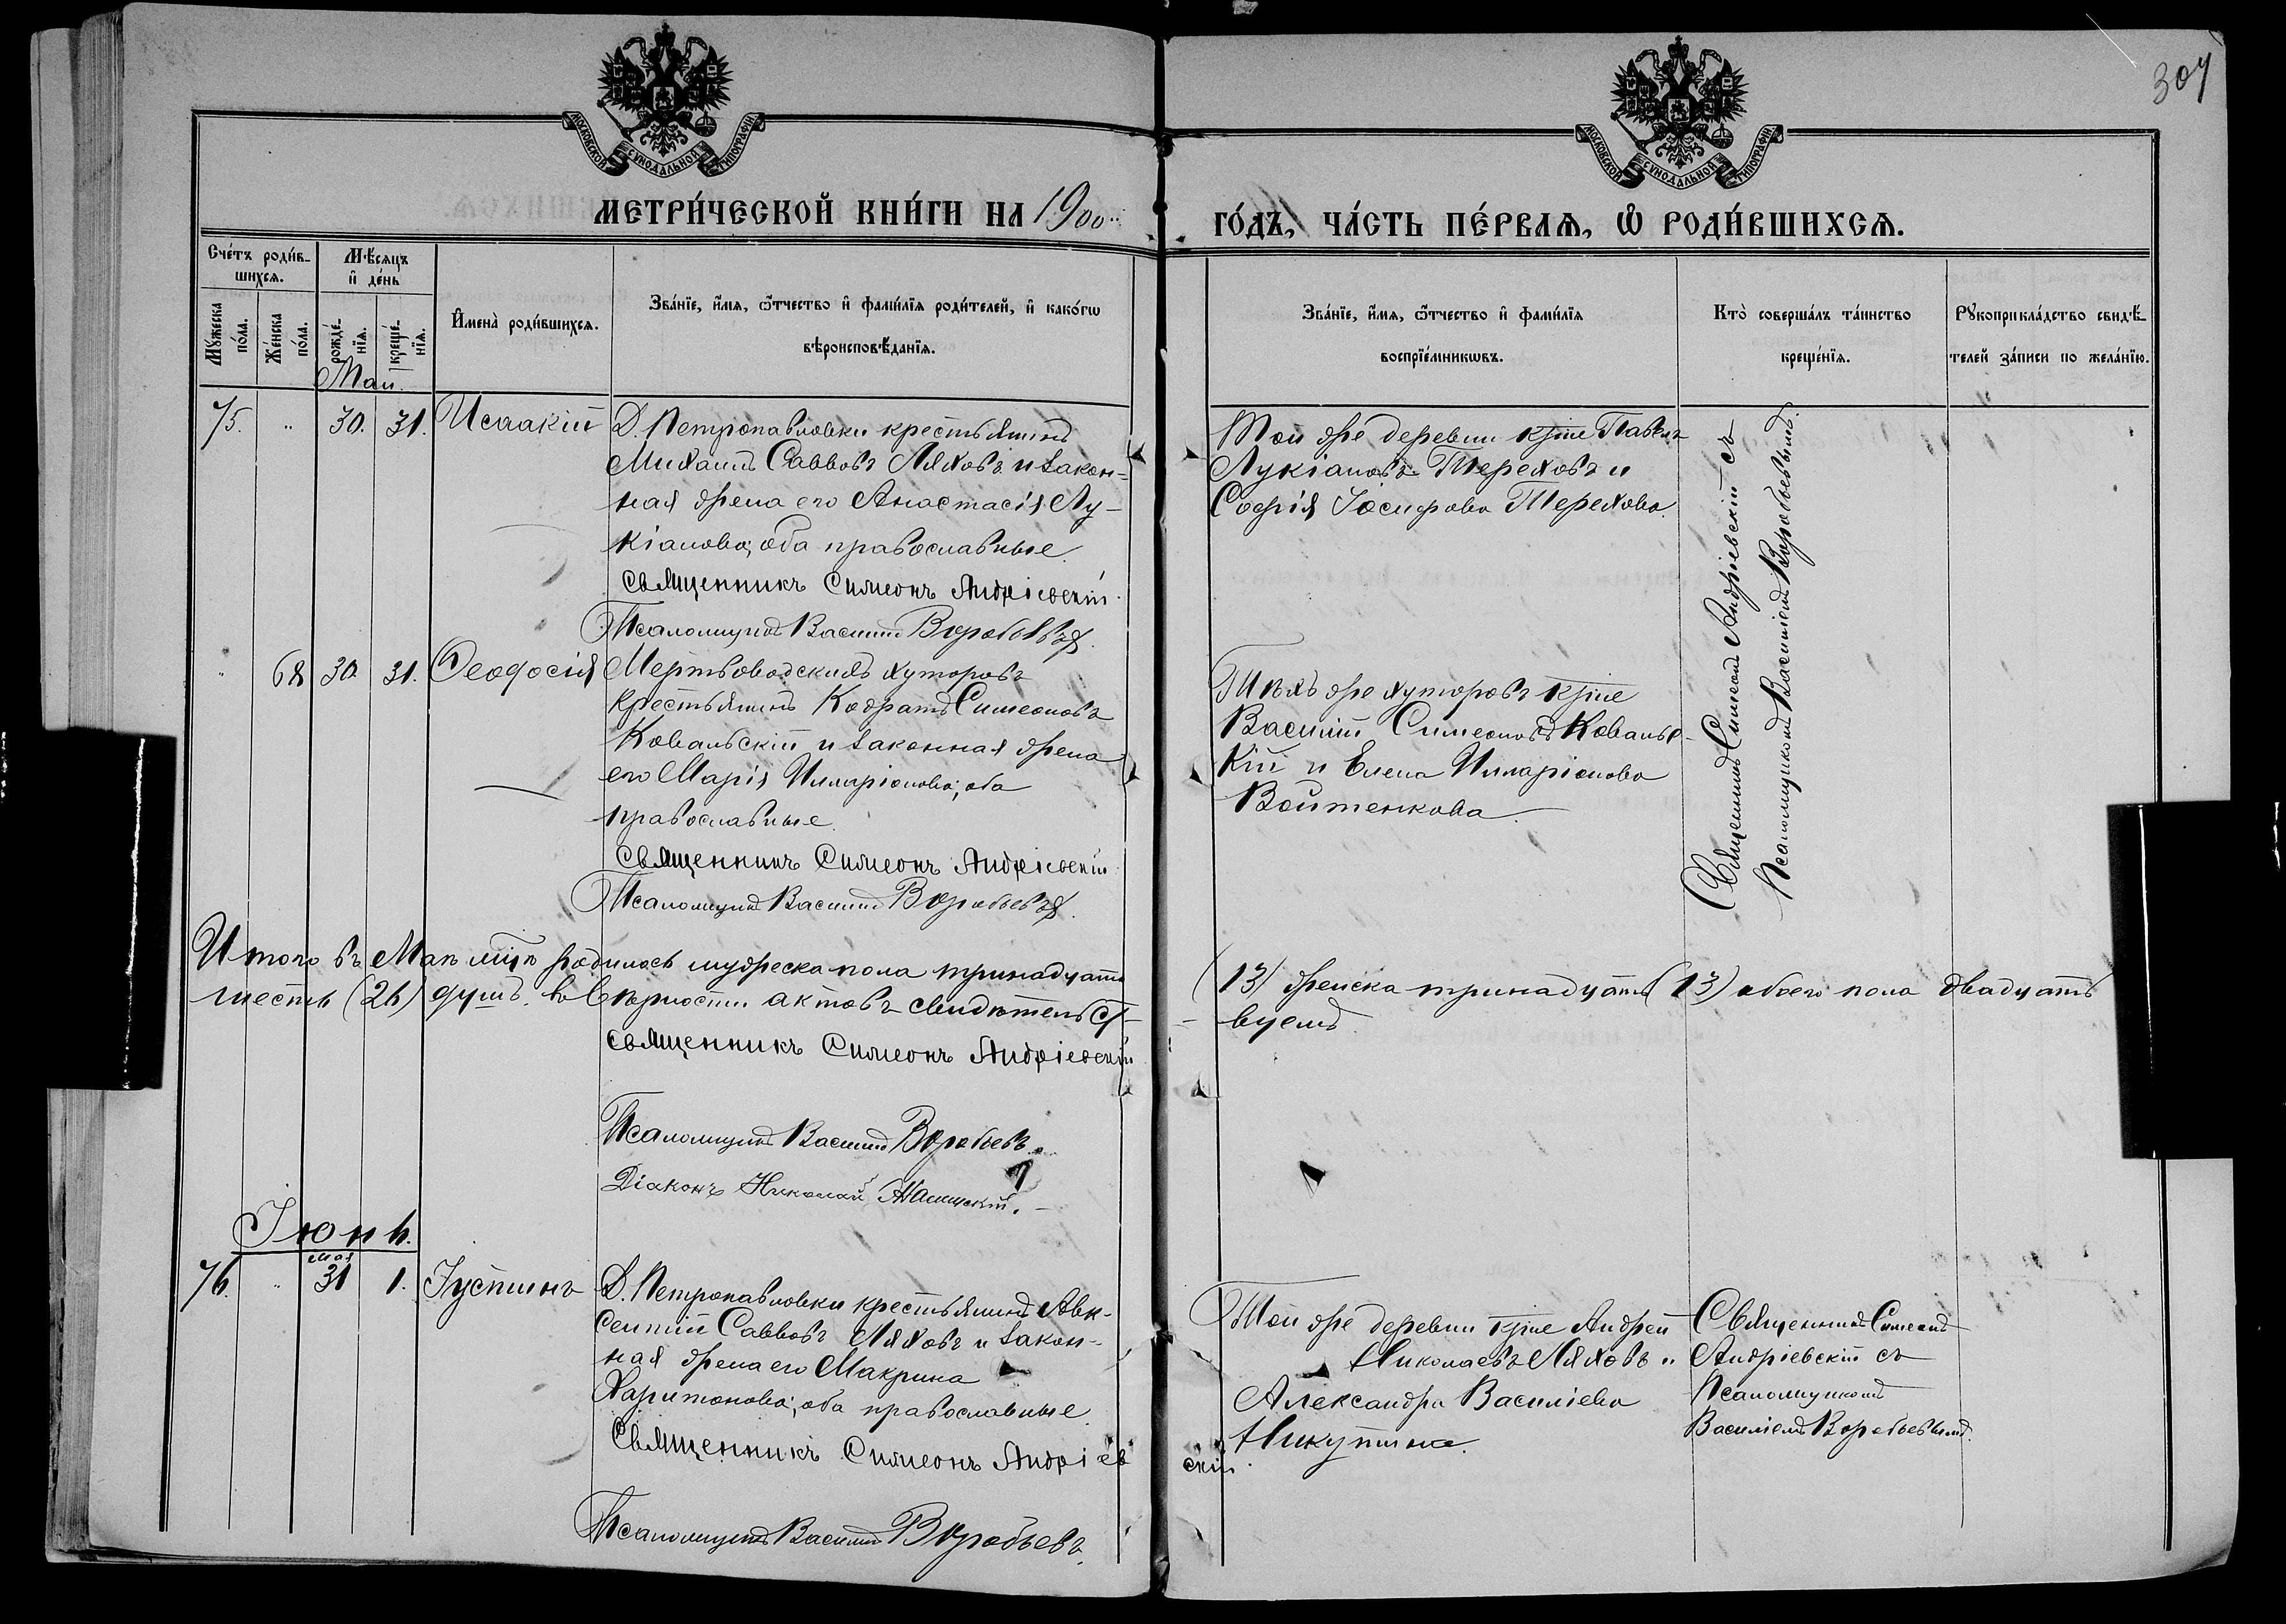 304
МОСКОВСКОЙ СУНОДАЛЬНОЙ ТИПОГРАФІИ
МОСКОВСКОЙ СУНОДАЛЬНОЙ ТИПОГРАФІИ
МЕТРИ́ЧЕСКОЙ КНИ́ГИ НА 1900
ГО́ДЪ, ЧА́СТЬ ПЕ́РВАѦ, Ѡ҆ РОДИ́ВШИХСѦ.
Сче́тъ роди́в-
шихсѧ.
Мꙋ́жеска по́ла.
Же́нска по́ла.
Мѣ́сяцъ
и҆ де́нь
рожде́-
нїѧ.
креще́-
нїѧ.
И҆мена̀ роди́вшихсѧ.
Зва́нїе, и҆́мѧ, ѻ҆́тчество и҆ фами́лїѧ роди́телей, и҆ како́гѡ
вѣроисповѣ́данїѧ.
Зва́нїе, и҆́мѧ, ѻ҆́тчество и҆ фами́лїѧ
воспрїе́мникѡвъ.
Кто̀ соверша́лъ та́инство
креще́нїѧ.
Рꙋкоприкла́дство свидѣ́-
телей за́писи по жела́нїю.
Маи.
75. " 30. 31. Исаакій
Д. Петропавловки крестьянинъ
Михаилъ Саввовъ Ляховъ и закон-
ная жена его Анастасія Лу-
кіанова; оба православные.
Священникъ Симеонъ Андріевскій.
Псаломщикъ Василій Воробьевъ.
Той же деревни крне Павелъ
Лукіановъ Тереховъ и
Софія Іосифова Терехова.
Священникъ Симеонъ Андріевскій съ
Псаломщикомъ Василіемъ Воробьевымъ.
" 68 30. 31. Ѳеодосія
Мертвоводскихъ хуторовъ
крестьянинъ Кодратъ Симеоновъ
Ковальскій и законная жена
его Марія Иларіонова; оба
православные.
Священникъ Симеонъ Андріевскій
Псаломщикъ Василій Воробьевъ.
Тѣхъ же хуторовъ крне
Василій Симеоновъ Ковальс-
кій и Елена Иларіонова
Войтенкова.
Итого въ Маѣ мцѣ родилось мужеска пола тринадцать (13) женска тринадцать (13) обоего пола двадцать
шесть (26) душъ. въ вѣрности актовъ свидѣтельст-
вуемъ.
Священникъ Симеонъ Андріевскій
Псаломщикъ Василій Воробьевъ.
Діаконъ Николай
Іюнь.
мая
76. " 31 1. Іустинъ
Д. Петропавловки крестьянинъ Авк-
сентій Саввовъ Ляховъ и закон-
ная жена его Макрина
Харитонова; оба православные.
Священникъ Симеонъ Андріев
скій.
Псаломщикъ Василій Воробьевъ.
Той же деревни крне Андрей
Николаевъ Ляховъ и
Александра Василіева
Никутина.
Священникъ Симеонъ
Андріевскій съ
Псаломщикомъ
Василіемъ Воробьевымъ.